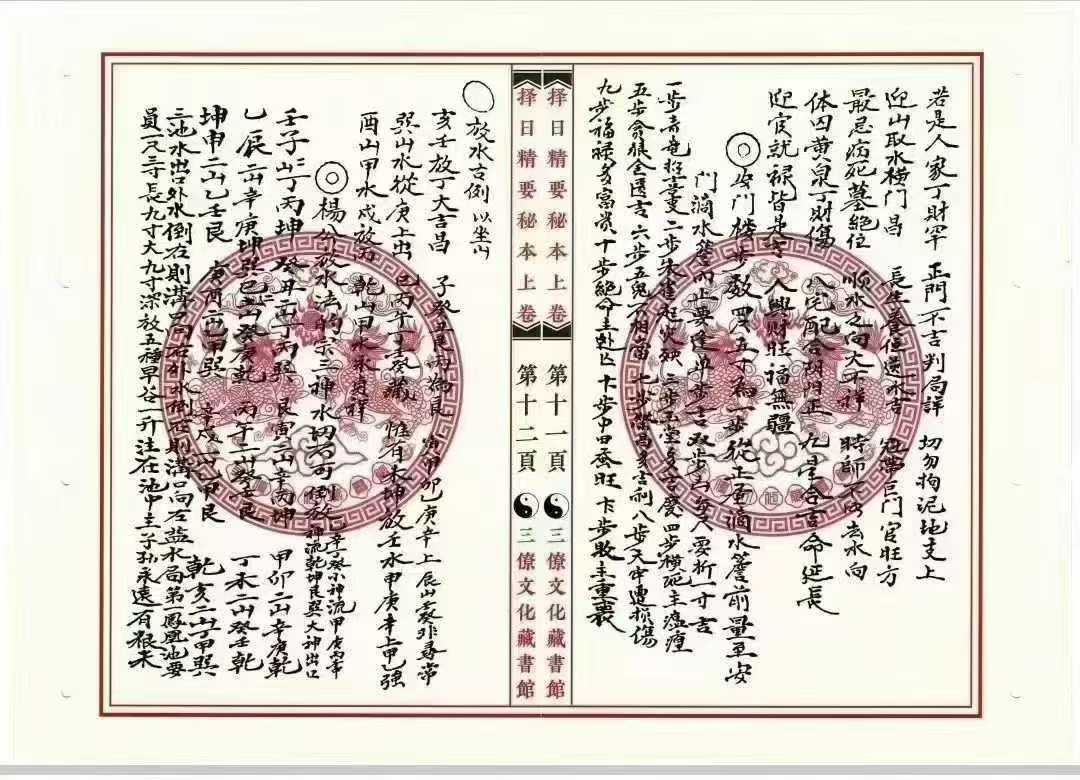 若是人家丁財罕 正門不吉判局詳 切勿拘泥地支上
迎山取水橫門昌 長生養位還水吉 冠帶臣門官旺方
最忌病死墓絕位 順水之向大不祥 時師不 去水向
体囚黃泉丁財傷 八宅配合陰陽正 九星合吉命延長
迎官就祿皆是吉 人興財旺福無疆
安門樓步數 四尺五寸為一步從正屋滴水簷前量至安
門滴水簷而止要逢单步吉双步凶每尺要折一寸吉
一步青龍招喜重二步朱雀起火殃三步玉堂多吉慶四步橫死主瘟瘴
五步貪狼全选吉六步五鬼不相當七步 多吉利八步天牢遭損傷
九步福祿多富貴十步絕命主 步中田蚕旺 步敗主重喪
择日精要秘本上卷 第十一頁 三僚文化藏書館
择日精要秘本上卷 第十二頁 三僚文化藏書館
放水吉例 以坐山
亥壬放丁大吉昌 子癸丑艮丙為良 寅甲卯乙庚辛上 辰山癸非尋常
巽山水從庚上出 巳丙午丁壬癸藏 惟有未坤放壬水申庚辛上甲乙強
酉山甲水戌放丙 乾山甲水永 祥
楊公放水法的宗三神水切不可倒放 乙辛丁癸小神流甲庚丙壬
中神流乾坤艮巽大神出口
壬子山丁丙坤 癸丑二山丁丙巽 艮寅二山辛丙坤 甲卯二山辛庚乾
乙辰二山辛庚坤 巽巳二山癸庚乾 丙午二山癸壬艮 丁未二山癸壬乾
坤申二山乙壬艮 庚酉二山乙甲巽 辛戌二山 甲艮 乾亥二山丁甲巽
三池水出口外水倒右則溝口向右外水倒左則溝口向左益水局第一鳳凰池要
員一尺二寸長九寸大九寸深放五種早谷一升注在池中主子孫永遠有粮未